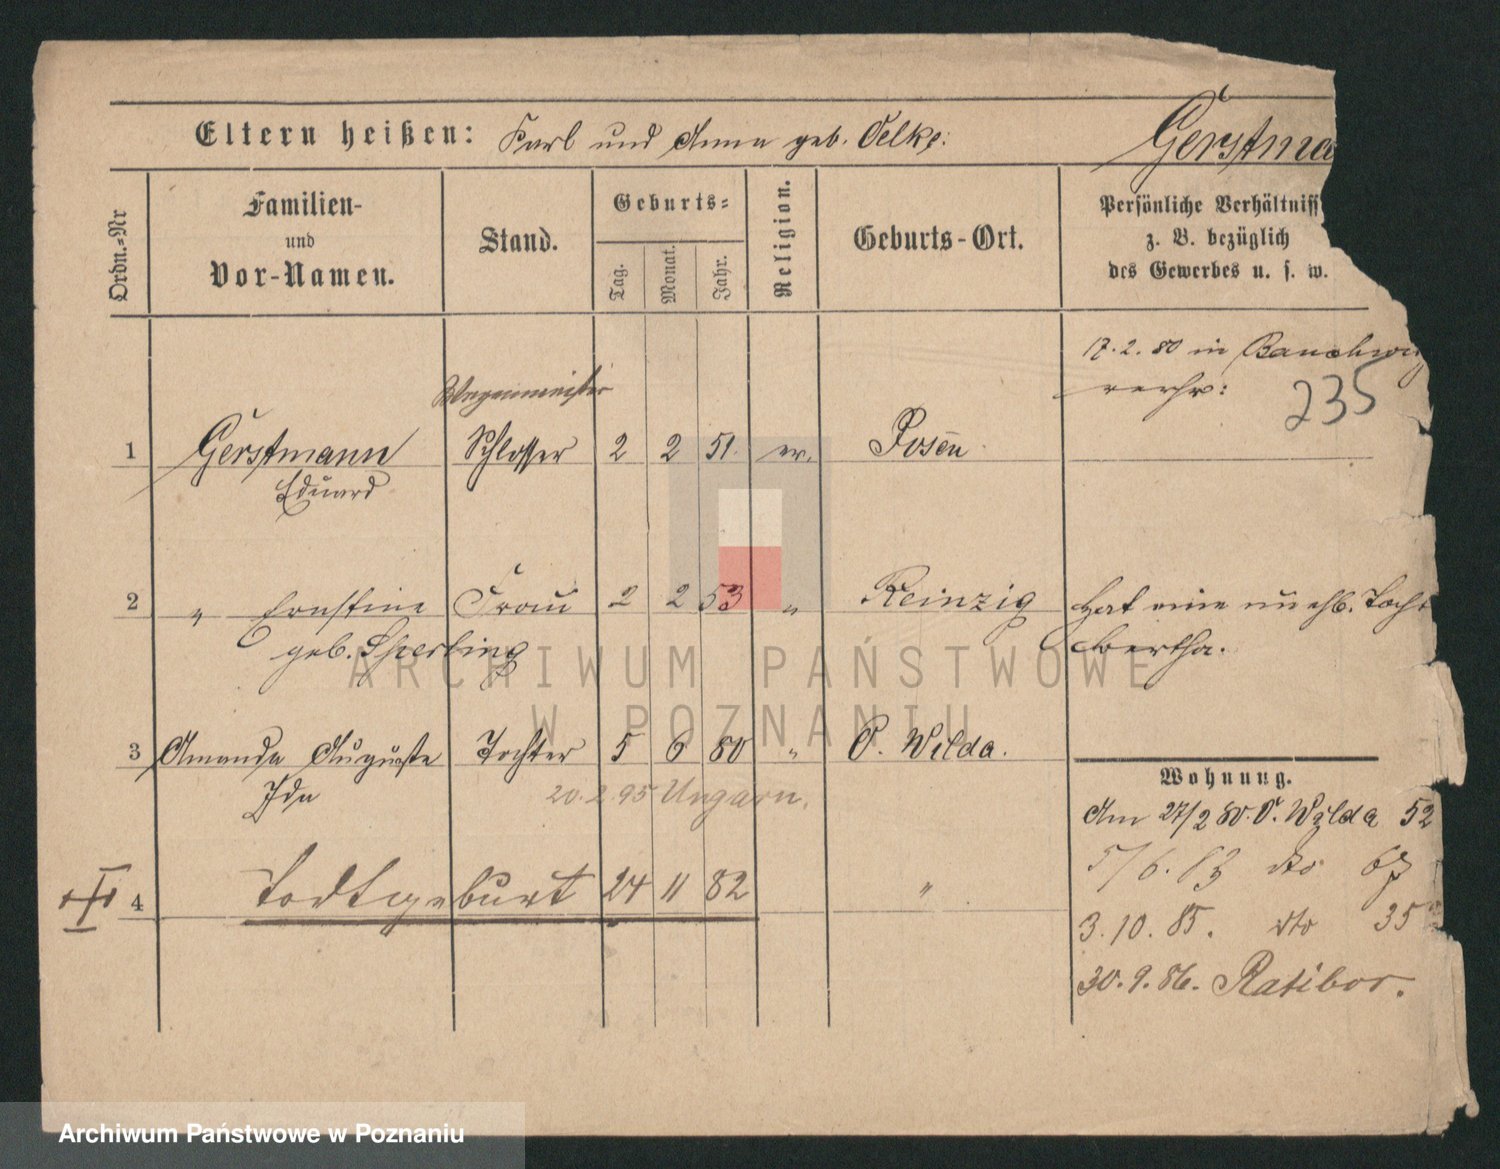 Eltern heißen: Karl und Anna geb. Oelke: Gerstma
Ordn.=Nr
Familien-
und
Vor-Namen.
Stand.
Geburts=
Tag.
Monat.
Jahr.
Religion.
Geburts-Ort.
Persönliche Verhältniss
z. B. bezüglich
des Gewerbes u. s. w.
17. 2. 80 in
verh:
235
Wagenmeister
1 Gerstmann Schlosser 2 2 51. ev. Posen
Eduard
2 " Ernstine Frau 2 2 53 " Reinzig Hat eine uneh. Toch
geb. Sperling Bertha.
3 Amanda Auguste Tochter 5 6 80 " O. Wilda.
Ida 20. 2. 95 Ungarn.
Wohnung.
Am 27/2 80. O. Wilda 52
4 Todtgeburt 24 11 82 "
5/6. 83 dto 67
3. 10. 85. dto 35
30. 9. 86. Ratibor.
ARCHIWUM PAŃSTWOWE
W POZNANIU
Archiwum Państwowe w Poznaniu